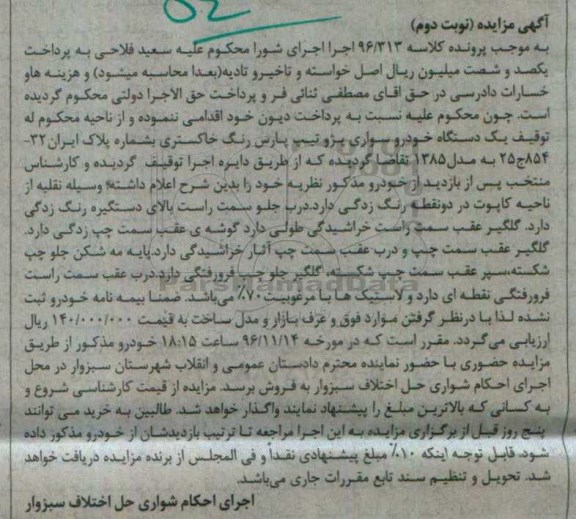 آگهی مزایده (نوبت دوم)
به موجب پرونده کلاسه ۹۶/۳۱۳ اجرا اجرای شورا محکوم علیه سعید فلاحی به پرداخت
یکصد و شصت میلیون ریال اصل خواسته و تاخیرو تادیه(بعدا محاسبه میشود) و هزینه هاو
خسارات دادرسی در حق اقای مصطفی ثنائی فر و پرداخت حق الاجرا دولتی محکوم گردیده
است. چون محکوم علیه نسبت به پرداخت دیون خود اقدامی ننموده و از ناحیه محکوم له
توقیف یک دستگاه خودرو سواری پژو تیپ پارس رنگ خاکستری بشماره پلاک ایران۳۲-
۸۵۴ج۲۵ به مدل۱۳۸۵ تقاضا گردیده که از طریق دایره اجرا توقیف گردیده و کارشناس
منتخب پس از بازدید از خودرو مذکور نظریه خود را بدین شرح اعلام داشته؛ وسیله نقلیه از
ناحیه کاپوت در دونقطه رنگ زدگی دارد.درب جلو سمت راست بالای دستگیره رنگ زدگی
دارد. گلگیر عقب سمت راست خراشیدگی طولی دارد گوشه ی عقب سمت چپ زدگی دارد.
گلگیر عقب سمت چپ و درب عقب سمت چپ آثار خراشیدگی دارد.پایه مه شکن جلو چپ
شکسته،سپر عقب سمت چپ شکسته، گلگیر جلو چپ فرورفتگی دارد.درب عقب سمت راست
فرورفتگی نقطه ای دارد و لاستیک ها با مرغوبیت۷۰٪ می‌باشد. ضمنا بیمه نامه خودرو ثبت
نشده لذا با درنظر گرفتن موارد فوق و عرف بازار و مدل ساخت به قیمت ۱۴۰/۰۰۰/۰۰۰ ریال
ارزیابی می‌گردد. مقرر است که در مورخه ۹۶/۱۱/۱۴ ساعت ۱۸:۱۵ خودرو مذکور از طریق
مزایده حضوری با حضور نماینده محترم دادستان عمومی و انقلاب شهرستان سبزوار در محل
اجرای احکام شوارى حل اختلاف سبزوار به فروش برسد. مزایده از قیمت کارشناسی شروع و
به کسانی که بالاترین مبلغ را پیشنهاد نمایند واگذار خواهد شد. طالبین به خرید می توانند
پنج روز قبل از برگزاری مزایده به این اجرا مراجعه تا ترتیب بازدیدشان از خودرو مذکور داده
شود. قابل توجه اینکه ۱۰٪ مبلغ پیشنهادی نقداً و فی المجلس از برنده مزایده دریافت خواهد
شد. تحویل و تنظیم سند تابع مقررات جاری می‌باشد.
اجرای احکام شواری حل اختلاف سبزوار
ParsNamadData